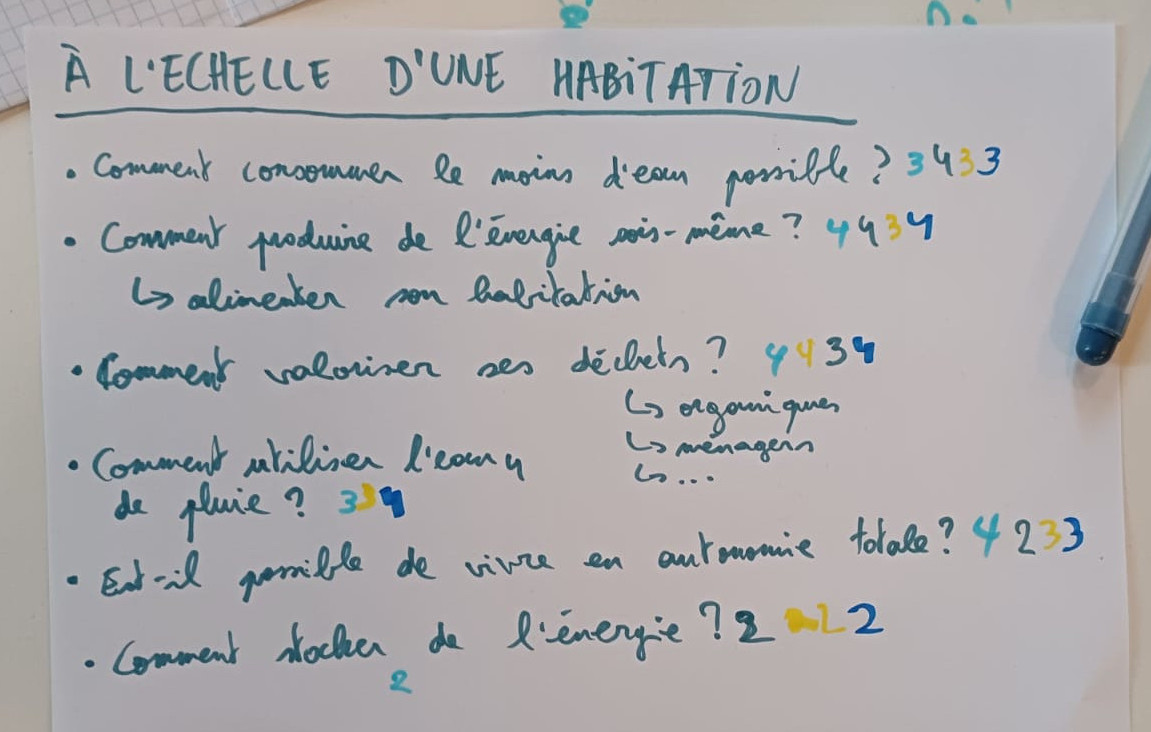 À L'ECHELLE D'UNE HABiTATiON
• Comment consommer le moins d'eau possible ? 3 4 3 3
• Comment produire de l'énergie sois-même ? 4 4 3 4
↳ alimenter son habitation
• Comment valoriser ses déchets ? 4 4 3 4
↳ organiques
↳ ménagers
↳ ...
• Comment utiliser l'eau 4
de pluie ? 3 3 4
• Est-il possible de vivre en autonomie totale ? 4 2 3 3
• Comment stocker de l'énergie ? 2 2 2
2